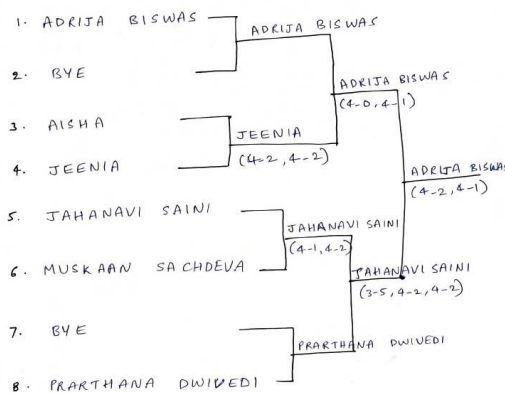 1. ADRIJA BISWAS
2. BYE
3. AISHA
4. JEENIA
5. JAHANAVI SAINI
6. MUSKAAN SACHDEVA
7. BYE
8. PRARTHANA DWIVEDI
ADRIJA BISWAS
JEENIA
(4-2, 4-2)
JAHANAVI SAINI
(4-1, 4-2)
PRARTHANA DWIVEDI
ADRIJA BISWAS
(4-0, 4-1)
JAHANAVI SAINI
(3-5, 4-2, 4-2)
ADRIJA BISWAS
(4-2, 4-1)